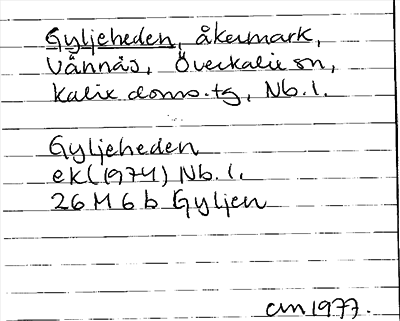 Gyljeheden, åkermark,
Vännäs, Överkalix sn,
Kalix doms.tg, Nb.l.
Gyljeheden
ekl(1974) Nb.l.
26 M 6 b Gyljen
am 1977.